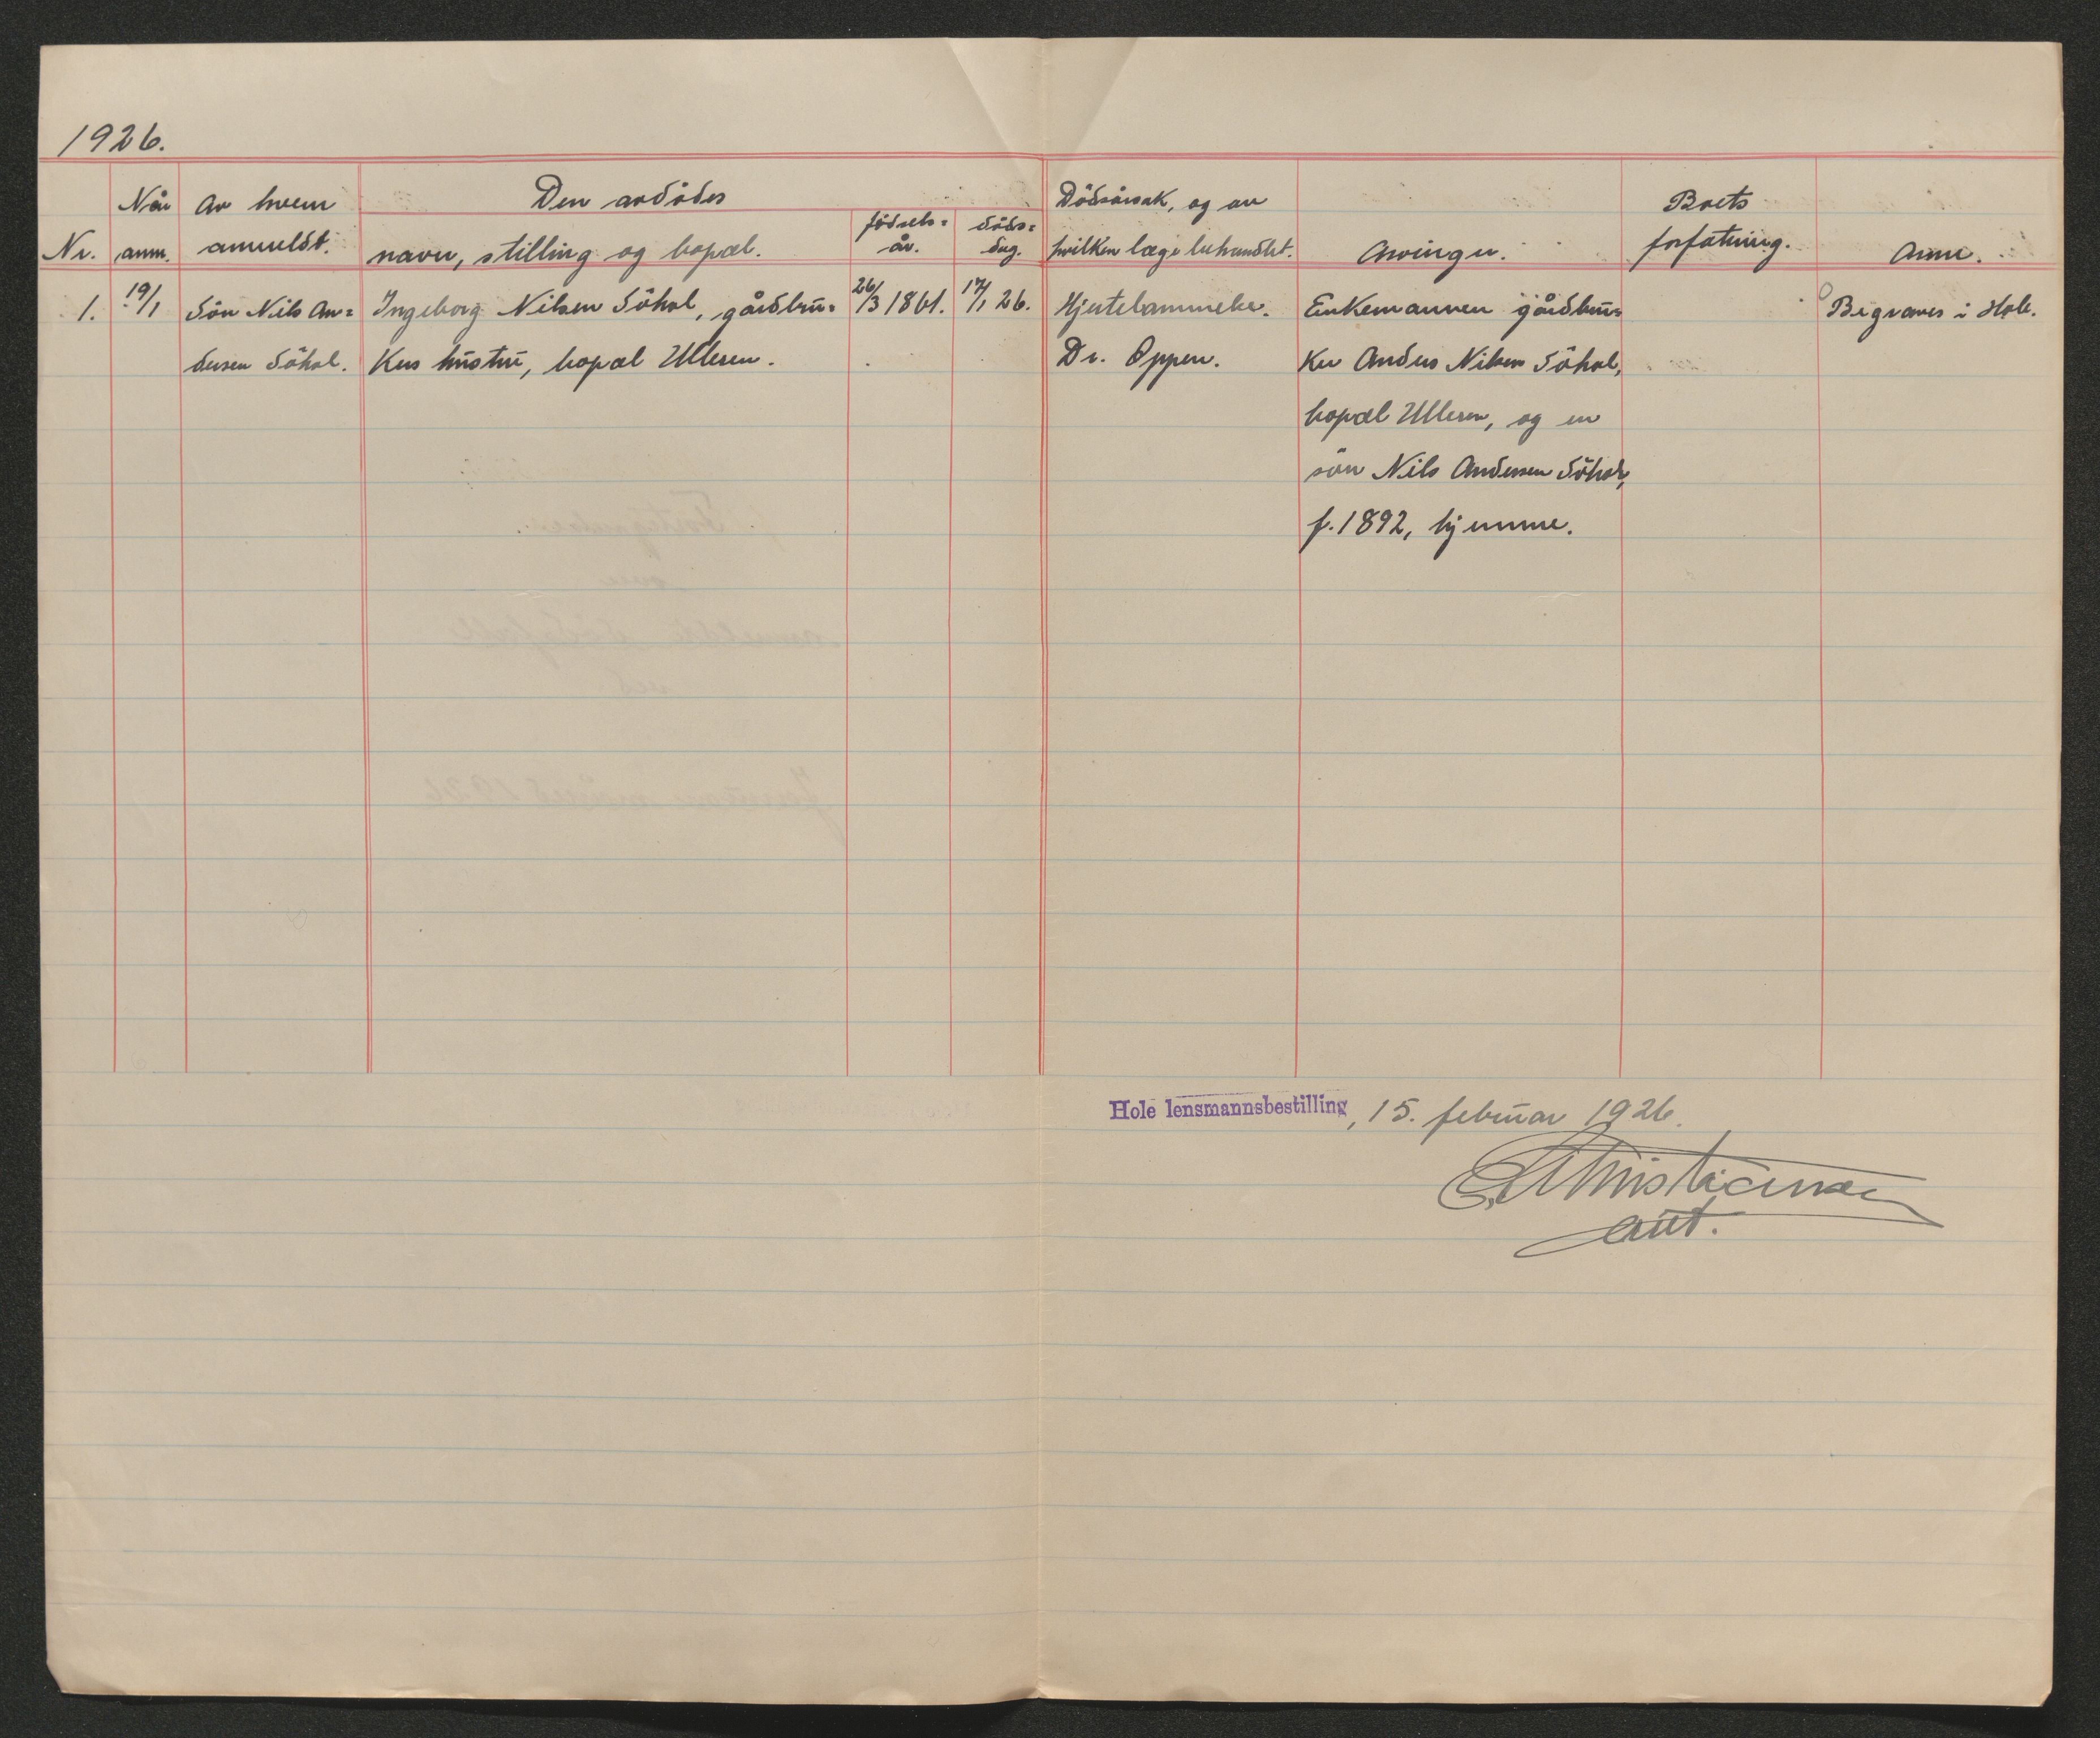 1926.
Nr.
Når anm.
Av hvem anmeldt.
Den avdödes
navn, stilling og bopæl.
födsels=
år.
döds=
dag.
Dödsårsak, og av
hvilken læge behandlet.
Arvinger.
Boets
forfatning.
Anm.
1.
19/1
Sön Nils An=
dersen Söhol.
Ingeborg Nilsen Söhol, gårdbru=
kers hustru, bopæl Ulleren.
26/3 1861.
17/1 26.
Hjertelammelse.
Dr. Oppen.
Enkemannen gårdbru=
ker Anders Nilsen Söhol,
bopæl Ulleren, og en
sön Nils Andersen Söhol,
f. 1892, hjemme.
Begraves i Hole.
Hole lensmannsbestilling, 15. februar 1926.
Christiansen
aut.